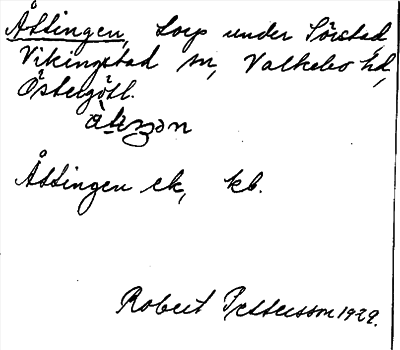 Åttingen, torp under Sörstad,
Vikingstad sn, Valkebo hd,
Östergötl.
Åttingen ek, kb.
Robert Pettersson 1929.